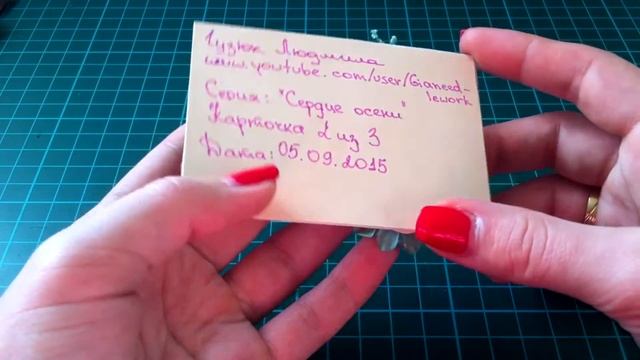 Гузюк Людмила
www.youtube.com/user/Gianeed-
lework
Серия: "Сердце осени"
Карточка 2 из 3
Дата: 05.09.2015